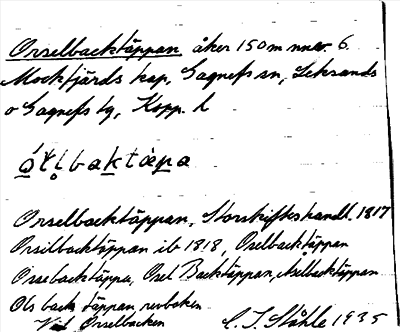 Orselbacktäppan åker 150 m nnv. 6.
Mockfjärds kap, Gagnefs sn, Leksands
o Gagnefs tg, Kopp. l
Orselbacktäppan, Storskifteshandl. 1817
Orsilbacktäppan ib 1818, Orselbacktäppan
Orsebacktäppa, Orsel Backtäppan,
Ols back täppan
Vid Orselbacken C. I. Ståhle 1935